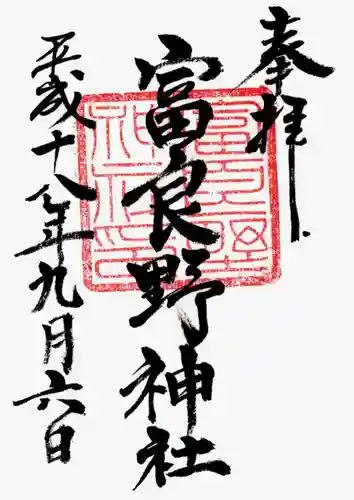 奉拝
富良野神社
平成十八年九月六日
富良野神社印